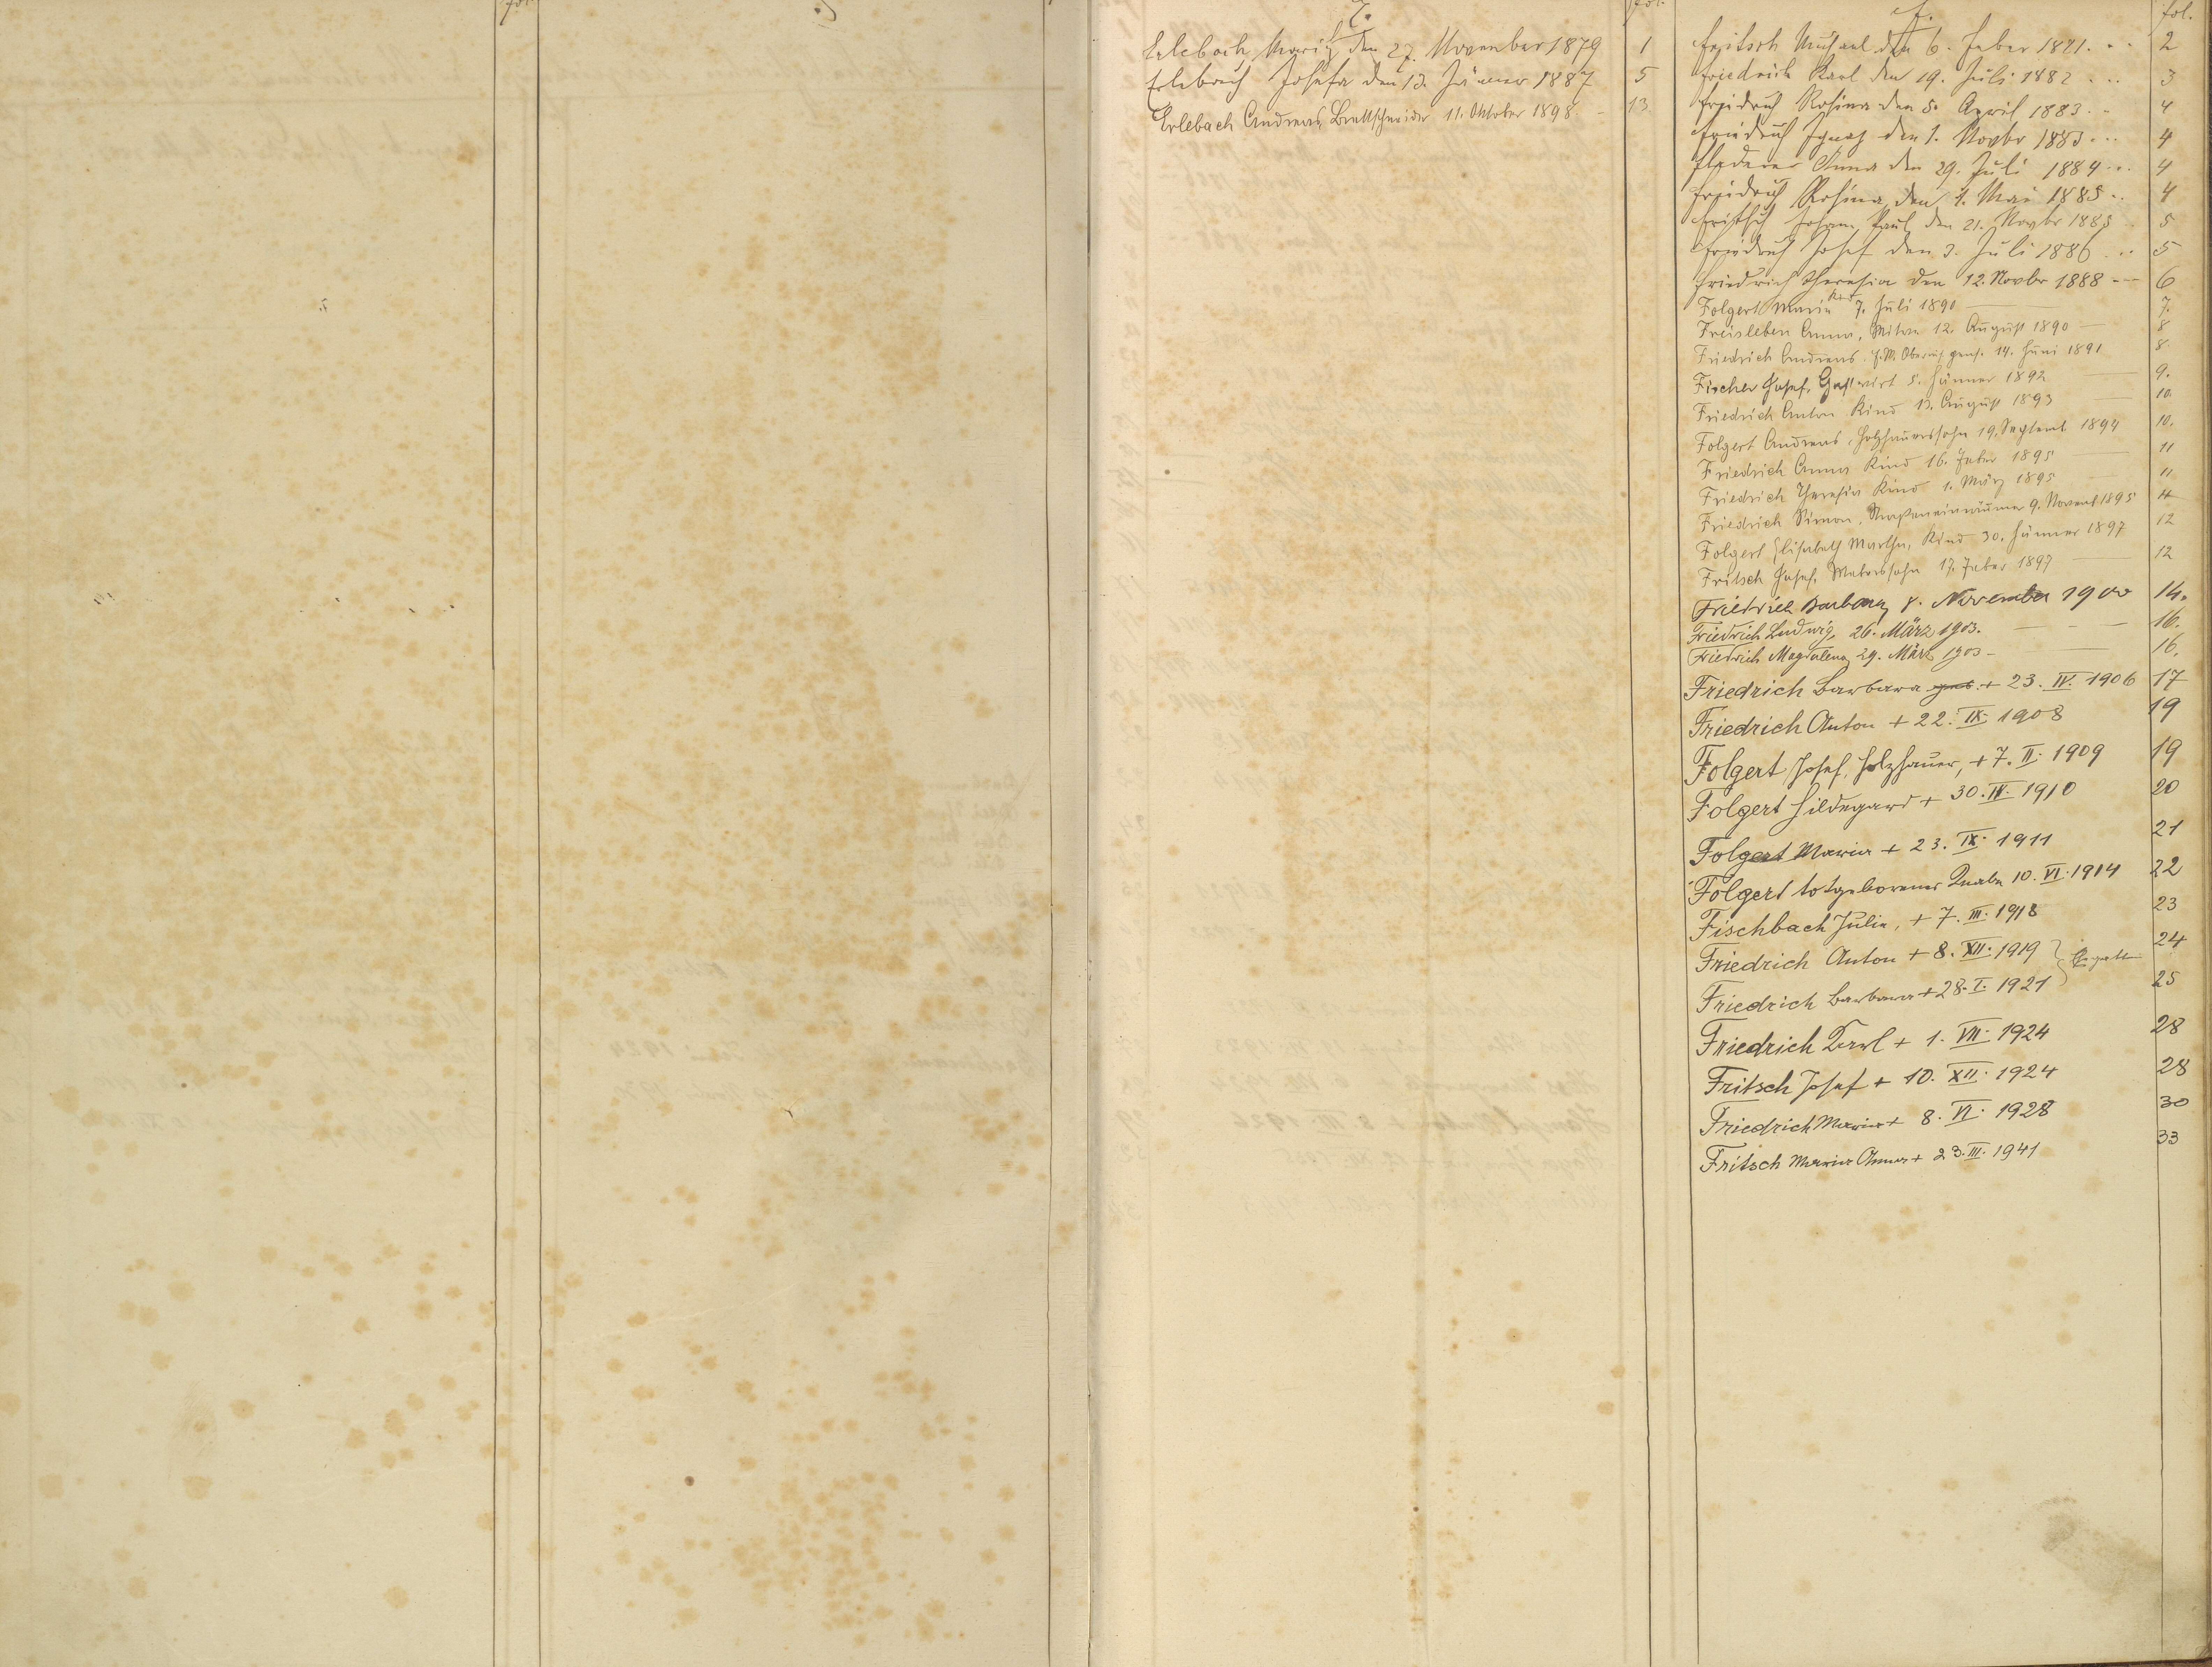 fol.
E.
fol.
Erlebach Moritz den 27. November 1879 1
Erlebach Josefa den 13. Jänner 1887 5
Erlebach Andreas, Brettschneider 11. Oktober 1898 - 13
F.
fol.
Fritsch Michael den 6. Feber 1881. .. 2
Friedrich Karl den 19. Juli 1882 ... 3
Friedrich Rosina den 5. April 1883 .. 4
Friedrich Ignaz den 1. Novbr 1883 ... 4
Anna den 29. Juli 1884 ... 4
Friedrich Rosina den 1. Mai 1885 .. 4
Fritsch Johann Paul den 21. Novbr 1885 5
Friedrich Josef den 3. Juli 1886 ... 5
Friedrich Theresia den 12. Novbr 1888 --- 6
Folgert Maria Kind 7. Juli 1890 7.
Freisleben Anna, Witwe 12. August 1890 — 8
Friedrich Andreas 14. Juni 1891 8.
Fischer Josef, Gastwirt 5. Jänner 1892 — 9.
Friedrich Anton Kind 13. August 1893 — 10.
Folgert Andreas, Holzhauerssohn 19. Septemb. 1894 10.
Friedrich Anna Kind 16. Feber 1895 — 11
Friedrich Theresia Kind 1. März 1895 — 11
Friedrich Simon, Straßeneinräumer 9. Novemb 1895 4
Folgert Elisabeth Martha, Kind 30. Jänner 1897 12
Fritsch Josef, Weberssohn 17. Feber 1897 — 12
Friedrich Barbara, 8. November 1900 14.
Friedrich Ludwig, 26. März 1903. — - — 16.
Friedrich Magdalena 29. März 1903 - — 16.
Friedrich Barbara + 23. IV. 1906 17
Friedrich Anton + 22. IX. 1908 19
Folgert Josef, Holzhauer, + 7. II. 1909 19
Folgert Hildegard + 30. IV. 1910 20
Folgert Maria + 23. IX. 1911 21
Folgert totgeborener Knabe 10. VI. 1914 22
Fischbach Julie, + 7. III. 1918 23
Friedrich Anton + 8. XII. 1919 } Ehegatten 24
Friedrich Barbara + 28. I. 1921 25
Friedrich Karl + 1. VII. 1924 28
Fritsch Josef + 10. XII. 1924 28
Friedrich Maria + 8. VI. 1928 30
Fritsch Maria Anna + 23. III. 1941 33